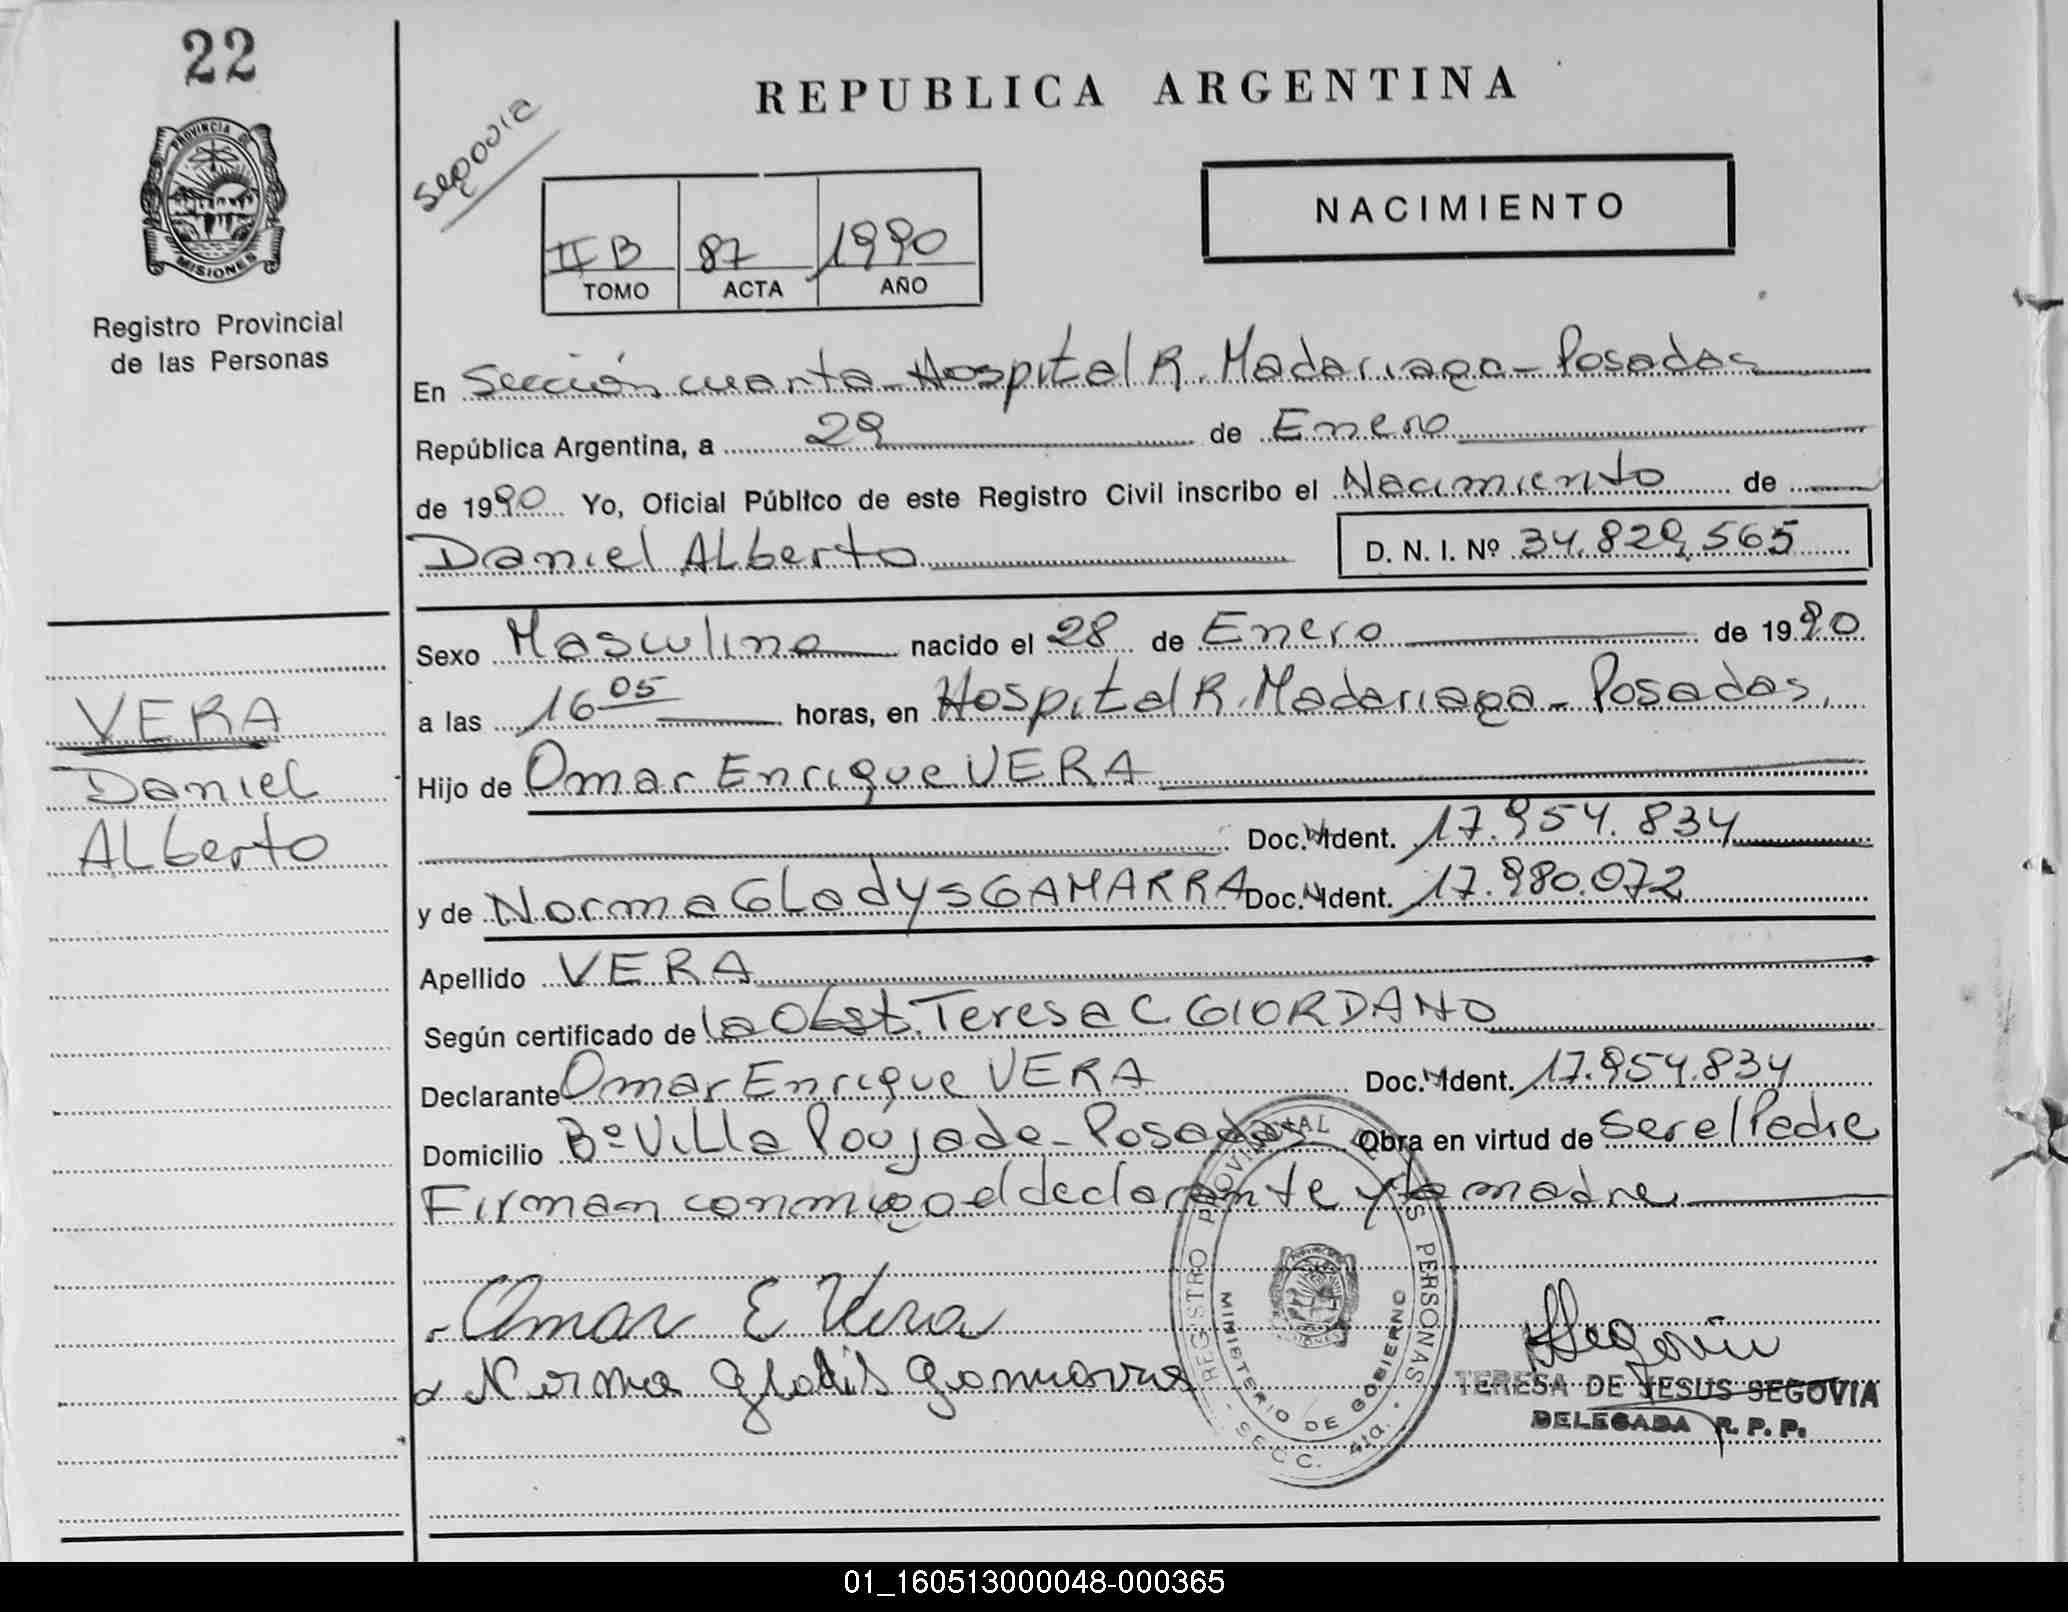 22
REPUBLICA ARGENTINA
Segovia
PROVINCIA DE
MISIONES
Registro Provincial
de las Personas
II B 87 1990
TOMO ACTA AÑO
NACIMIENTO
En Sección cuarta Hospital R. Madariaga - Posadas
República Argentina, a 29 de Enero
de 1990 Yo, Oficial Público de este Registro Civil inscribo el Nacimiento de
Daniel ALberto D. N. I. Nº 34.829.565
Sexo Masculino nacido el 28 de Enero de 1990
a las 16 05 horas, en Hospital R. Madariaga - Posadas.
VERA
Daniel
ALberto
Hijo de Omar Enrique VERA
Doc. N Ident. 17.954.834
y de Norma GLadys GAMARRA Doc. N Ident. 17.980.072
Apellido VERA
Según certificado de la Obst. Teresa C GIORDANO
Declarante Omar Enrique VERA Doc. N Ident. 17.954.834
Domicilio Bº ViLLa Poujade - Posadas Obra en virtud de ser el Padre
Firman conmigo el declarante y la madre
Omar E Vera
Norma Gladis Gamarra
REGISTRO PROVINCIAL DE LAS PERSONAS
MINISTERIO DE GOBIERNO
SECC. 4ta.
Segovia
TERESA DE JESUS SEGOVIA
DELEGADA R. P. P.
01_160513000048-000365